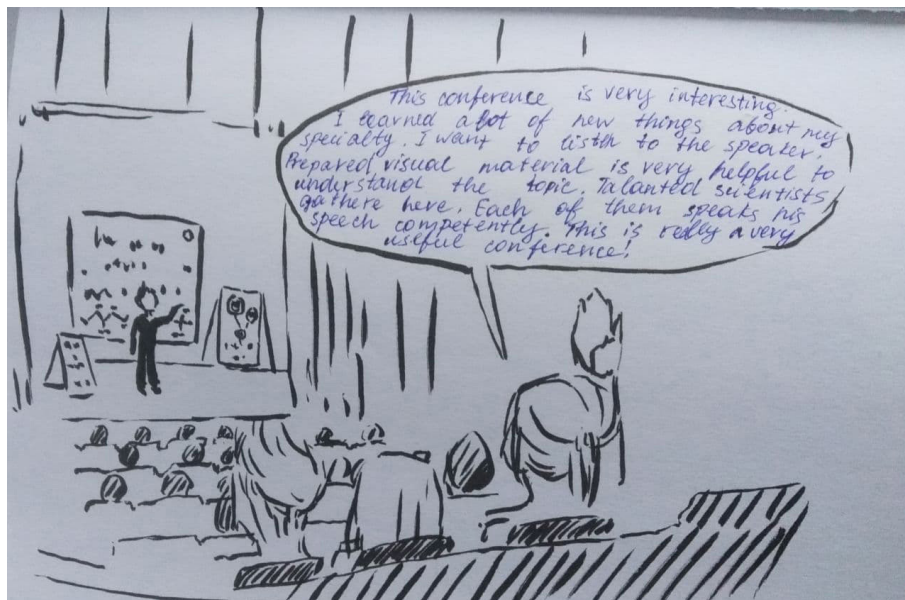 This conference is very interesting.
I learned a lot of new things about my
specialty. I want to listen to the speaker.
Prepared visual material is very helpful to
understand the topic. Talanted scientists
gathere here. Each of them speaks his
speech competently. This is really a very
useful conference!